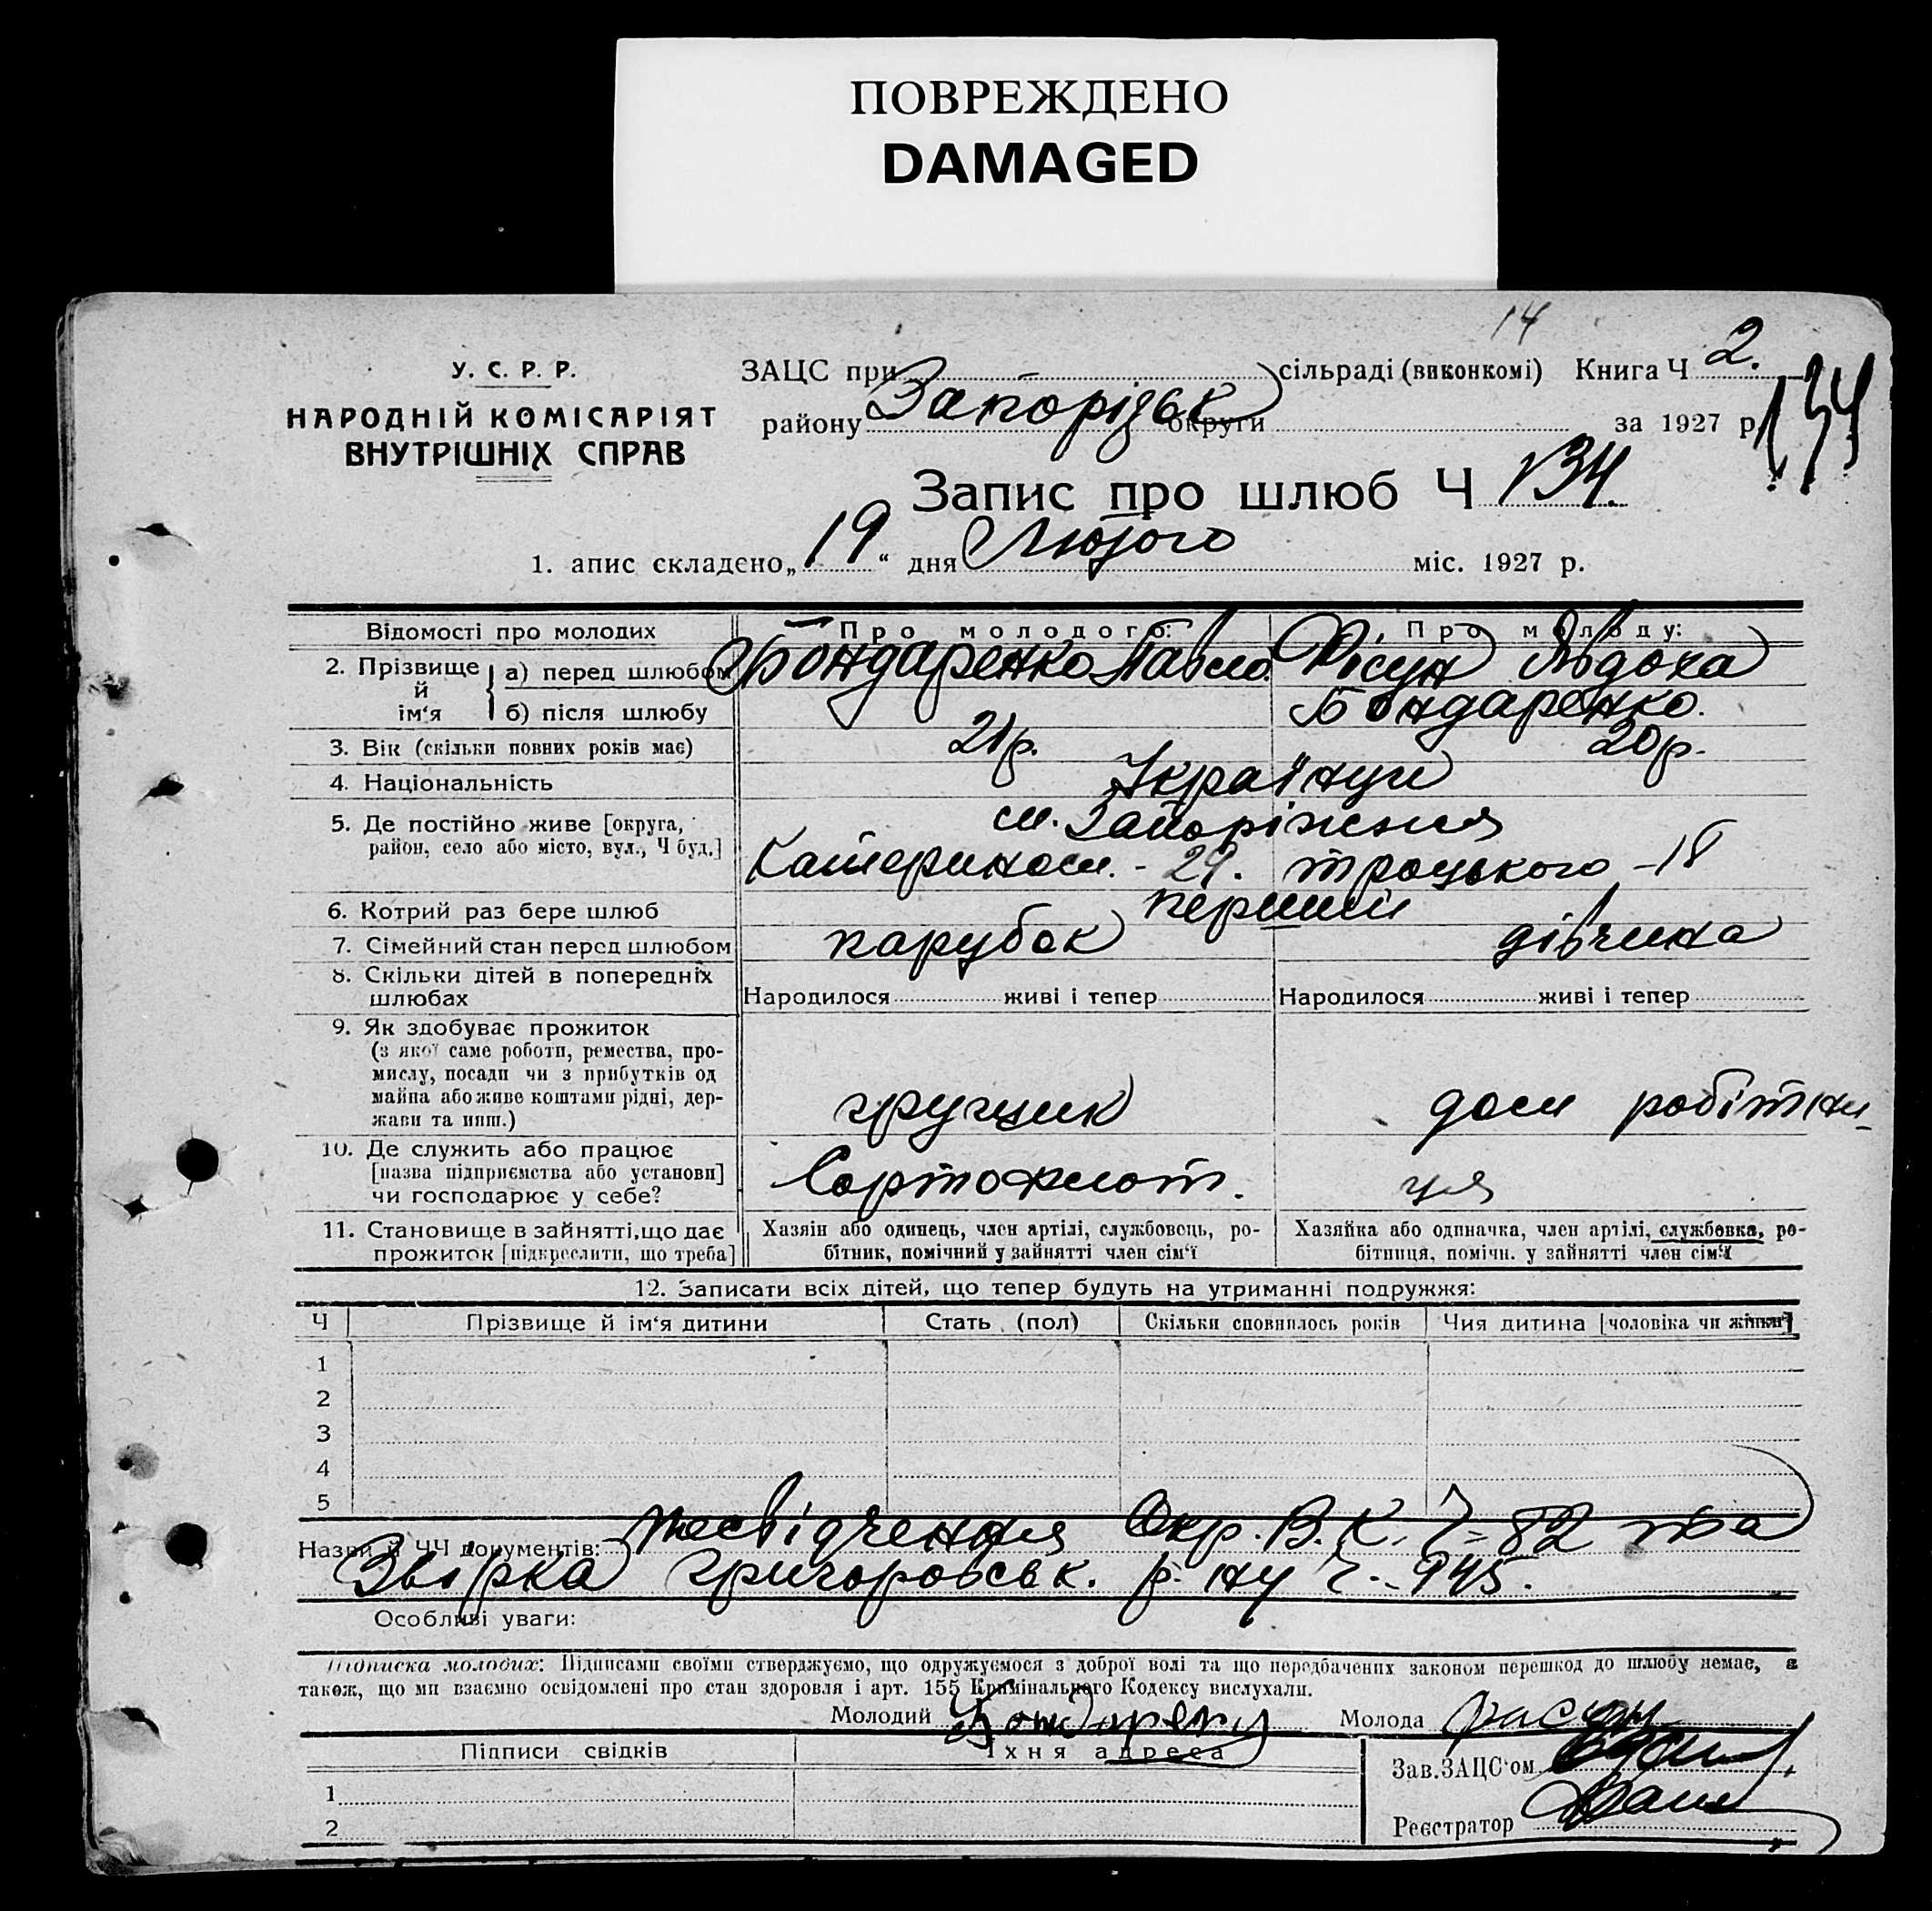 ПОВРЕЖДЕНО
DAMAGED
14
У. С. Р. Р.
НАРОДНІЙ КОМІСАРІЯТ
ВНУТРІШНІХ СПРАВ
ЗАЦС при сільраді (виконкомі) Книга Ч 2.
району Запорізьк округи за 1927 р. 134
Запис про шлюб Ч 134.
1. апис складено „19“ дня Лютого міс. 1927 р.
Відомості про молодих Про молодого: Про молоду:
2. Прізвище й ім‘я а) перед шлюбом Бондаренко Павло. Фісун Явдоха
б) після шлюбу Бондаренко.
3. Вік (скільки повних років має) 21р. 20р.
4. Національність Українці
5. Де постійно живе [округа, м. Запоріжжя
район, село або місто, вул., Ч буд.] Катериносл. - 29. Троцького - 18
6. Котрий раз бере шлюб перший
7. Сімейний стан перед шлюбом парубок дівчина
8. Скільки дітей в попередніх
шлюбах Народилося живі і тепер Народилося живі і тепер
9. Як здобуває прожиток
(з якої саме роботи, ремества, про-
мислу, посади чи з прибутків од
майна або живе коштами рідні, дер-
жави та инш.) грущик дом робітни-
10. Де служить або працює
[назва підприємства або установи] ця
чи господарює у себе?
11. Становище в зайнятті, що дає Хазяїн або одинець, член артілі, службовець, ро- Хазяйка або одиначка, член артілі, службовка, ро-
прожиток [підкреслити, що треба] бітник, помічний у зайнятті член сім‘ї бітниця, помічн. у зайнятті член сім‘ї
12. Записати всіх дітей, що тепер будуть на утриманні подружжя:
Ч Прізвище й ім‘я дитини Стать (пол) Скільки сповнилось років Чия дитина [чоловіка чи жінки]
1
2
3
4
5
Назви й ЧЧ документів: посвідчення Окр. В. К. Ч - 82 та
Звірка григоровськ. р. ну ч. - 945.
Особливі уваги:
Підписка молодих: Підписами своїми стверджуємо, що одружуємося з доброї волі та що передбачених законом перешкод до шлюбу немає, а
також, що ми взаємно освідомлені про стан здоровля і арт. 155 Кримінального Кодексу вислухали.
Молодий Бондаренко Молода Фасун
Підписи свідків Їхня адреса Зав. ЗАЦС‘ом
1
2 Реєстратор